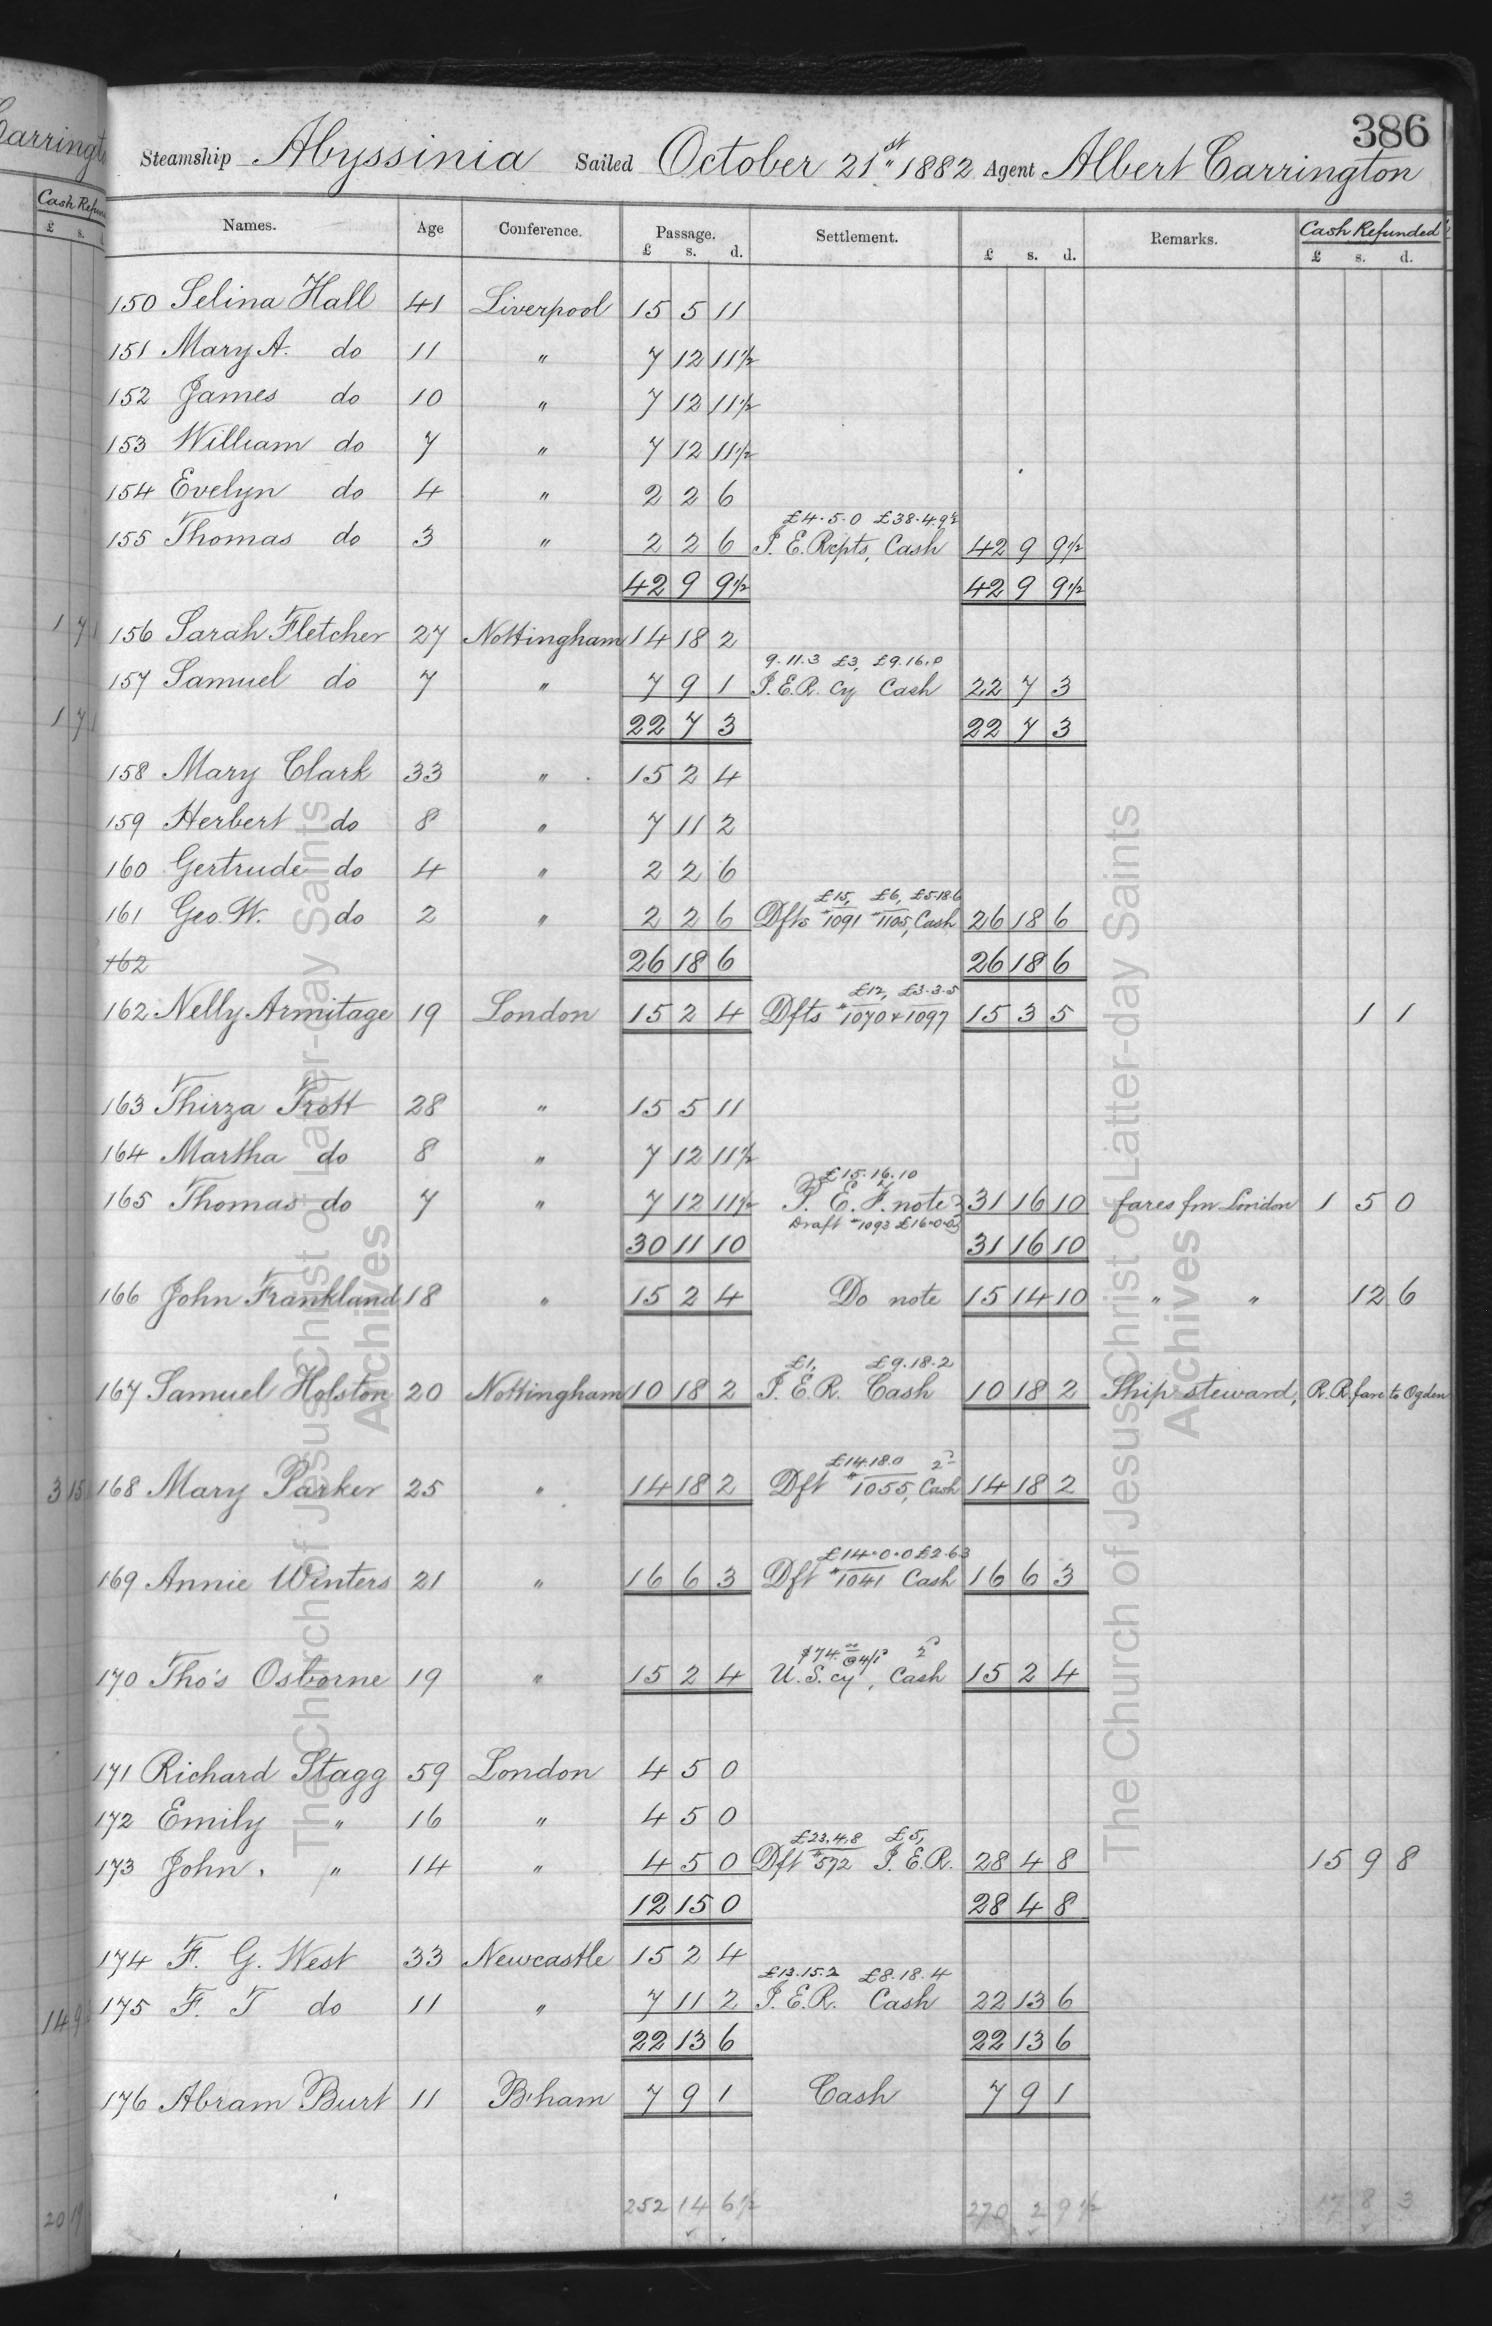 386
Steamship Abyssinia Sailed October 21st 1882 Agent Albert Carrington
Names. Age Conference. Passage. Settlement. Remarks. Cash Refunded
£ s. d. £ s. d. £ s. d.
150 Selina Hall 41 Liverpool 15 5 11
151 Mary A. do 11 " 7 12 11½
152 James do 10 " 7 12 11½
153 William do 7 " 7 12 11½
154 Evelyn do 4 " 2 2 6
£4.5.0 £38.4.9½
155 Thomas do 3 " 2 2 6 I. E. Rcpts, Cash 42 9 9½
42 9 9½ 42 9 9½
156 Sarah Fletcher 27 Nottingham 14 18 2
9.11.3 £3, £9.16.0
157 Samuel do 7 " 7 9 1 I.E.R. Cy Cash 22 7 3
22 7 3 22 7 3
158 Mary Clark 33 " 15 2 4
159 Herbert do 8 " 7 11 2
160 Gertrude do 4 " 2 2 6
£15, £6, £5.18.6
161 Geo. W. do 2 " 2 2 6 Dfts #1091 #1105, Cash 26 18 6
162 26 18 6 26 18 6
£12, £3.3.5
162 Nelly Armitage 19 London 15 2 4 Dfts #1070 + 1097 15 3 5 1 1
163 Thirza Trott 28 " 15 5 11
164 Martha do 8 " 7 12 11½
£15.16.10
165 Thomas do 7 " 7 12 11½ P. E. F. note 31 16 10 fares fm London 1 5 0
Draft #1093 £16.0.0
30 11 10 31 16 10
166 John Frankland 18 " 15 2 4 Do note 15 14 10 " " 12 6
£1, £9.18.2
167 Samuel Holston 20 Nottingham 10 18 2 I. E. R. Cash 10 18 2 Ship steward, R. R. fare to Ogden
£14.18.0 2d
168 Mary Parker 25 " 14 18 2 Dft #1055, Cash 14 18 2
£14.0.0 £2.6.3
169 Annie Winters 21 " 16 6 3 Dft #1041 Cash 16 6 3
$74.00 @4/1
170 Tho's Osborne 19 " 15 2 4 U. S. cy, Cash 15 2 4
171 Richard Stagg 59 London 4 5 0
172 Emily " 16 " 4 5 0
£23.4.8 £5,
173 John, " 14 " 4 5 0 Dft #572 I. E. R. 28 4 8 15 9 8
12 15 0 28 4 8
174 F. G. West 33 Newcastle 15 2 4
£13.15.2 £8.18.4
175 F. T do 11 " 7 11 2 I. E. R. Cash 22 13 6
22 13 6 22 13 6
176 Abram Burt 11 B'ham 7 9 1 Cash 7 9 1
252 14 6½ 270 2 9½ 17 8 3
Carringt
Cash Refun
£ s. d.
1 7 1
1 7 1
3 15
14 9
20 19
The Church of Jesus Christ of Latter-day Saints
Archives
The Church of Jesus Christ of Latter-day Saints
Archives